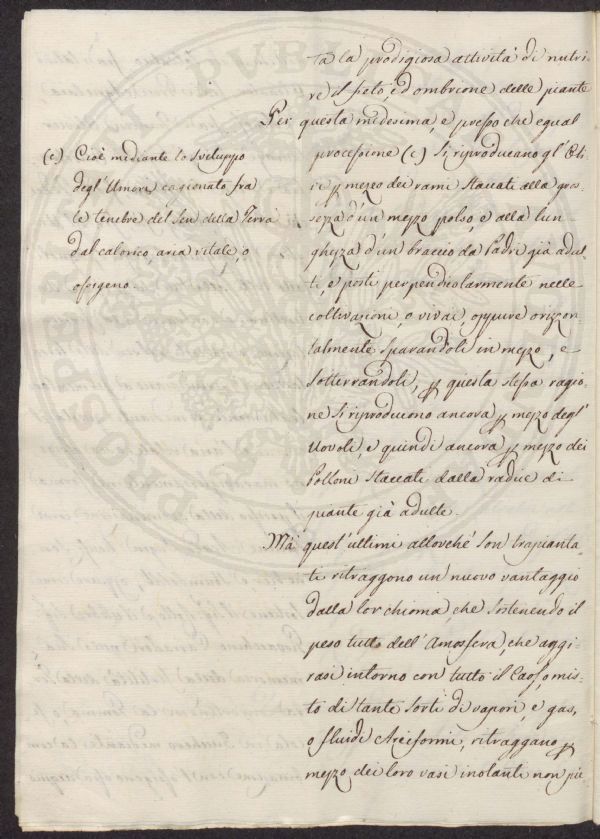 ta la prodigiosa attività di nutri-
re il feto, ed ombrione delle piante
Per questa medesima, e presso che egual
processione (c) si riproducano gl'Oli-
vi p mezzo dei rami staccati alla gros-
sezza d'un mezzo polso, e alla lun-
ghezza d'un braccio da Padri già adul-
ti, e posti perpendicolarmente nelle
coltivazione, o vivai, oppure orizzon-
talmente sparandoli in mezzo, e
sotterrandoli, p questa stessa ragio-
ne si riproducono ancora p mezzo degl'
Uovoli, e quindi ancora p mezzo dei
Polloni staccati dalla radice di
piante già adulte.
Mà quest'ultimi allorchè son trapianta-
ti ritraggono un nuovo vantaggio
dalla lor chioma, che sostenendo il
peso tutto dell'Amosfera, che aggi-
rasi intorno con tutto il Caos, mis-
to di tante sorti di vapori, e gas,
o fluidi Aeriformi, ritraggano p
mezzo dei loro vasi inolanti non più
(c) Cioè mediante lo sviluppo
degl'Umori cagionato fra
le tenebre del Sen della Terra
dal calorico, aria vitale, o
ossigeno.